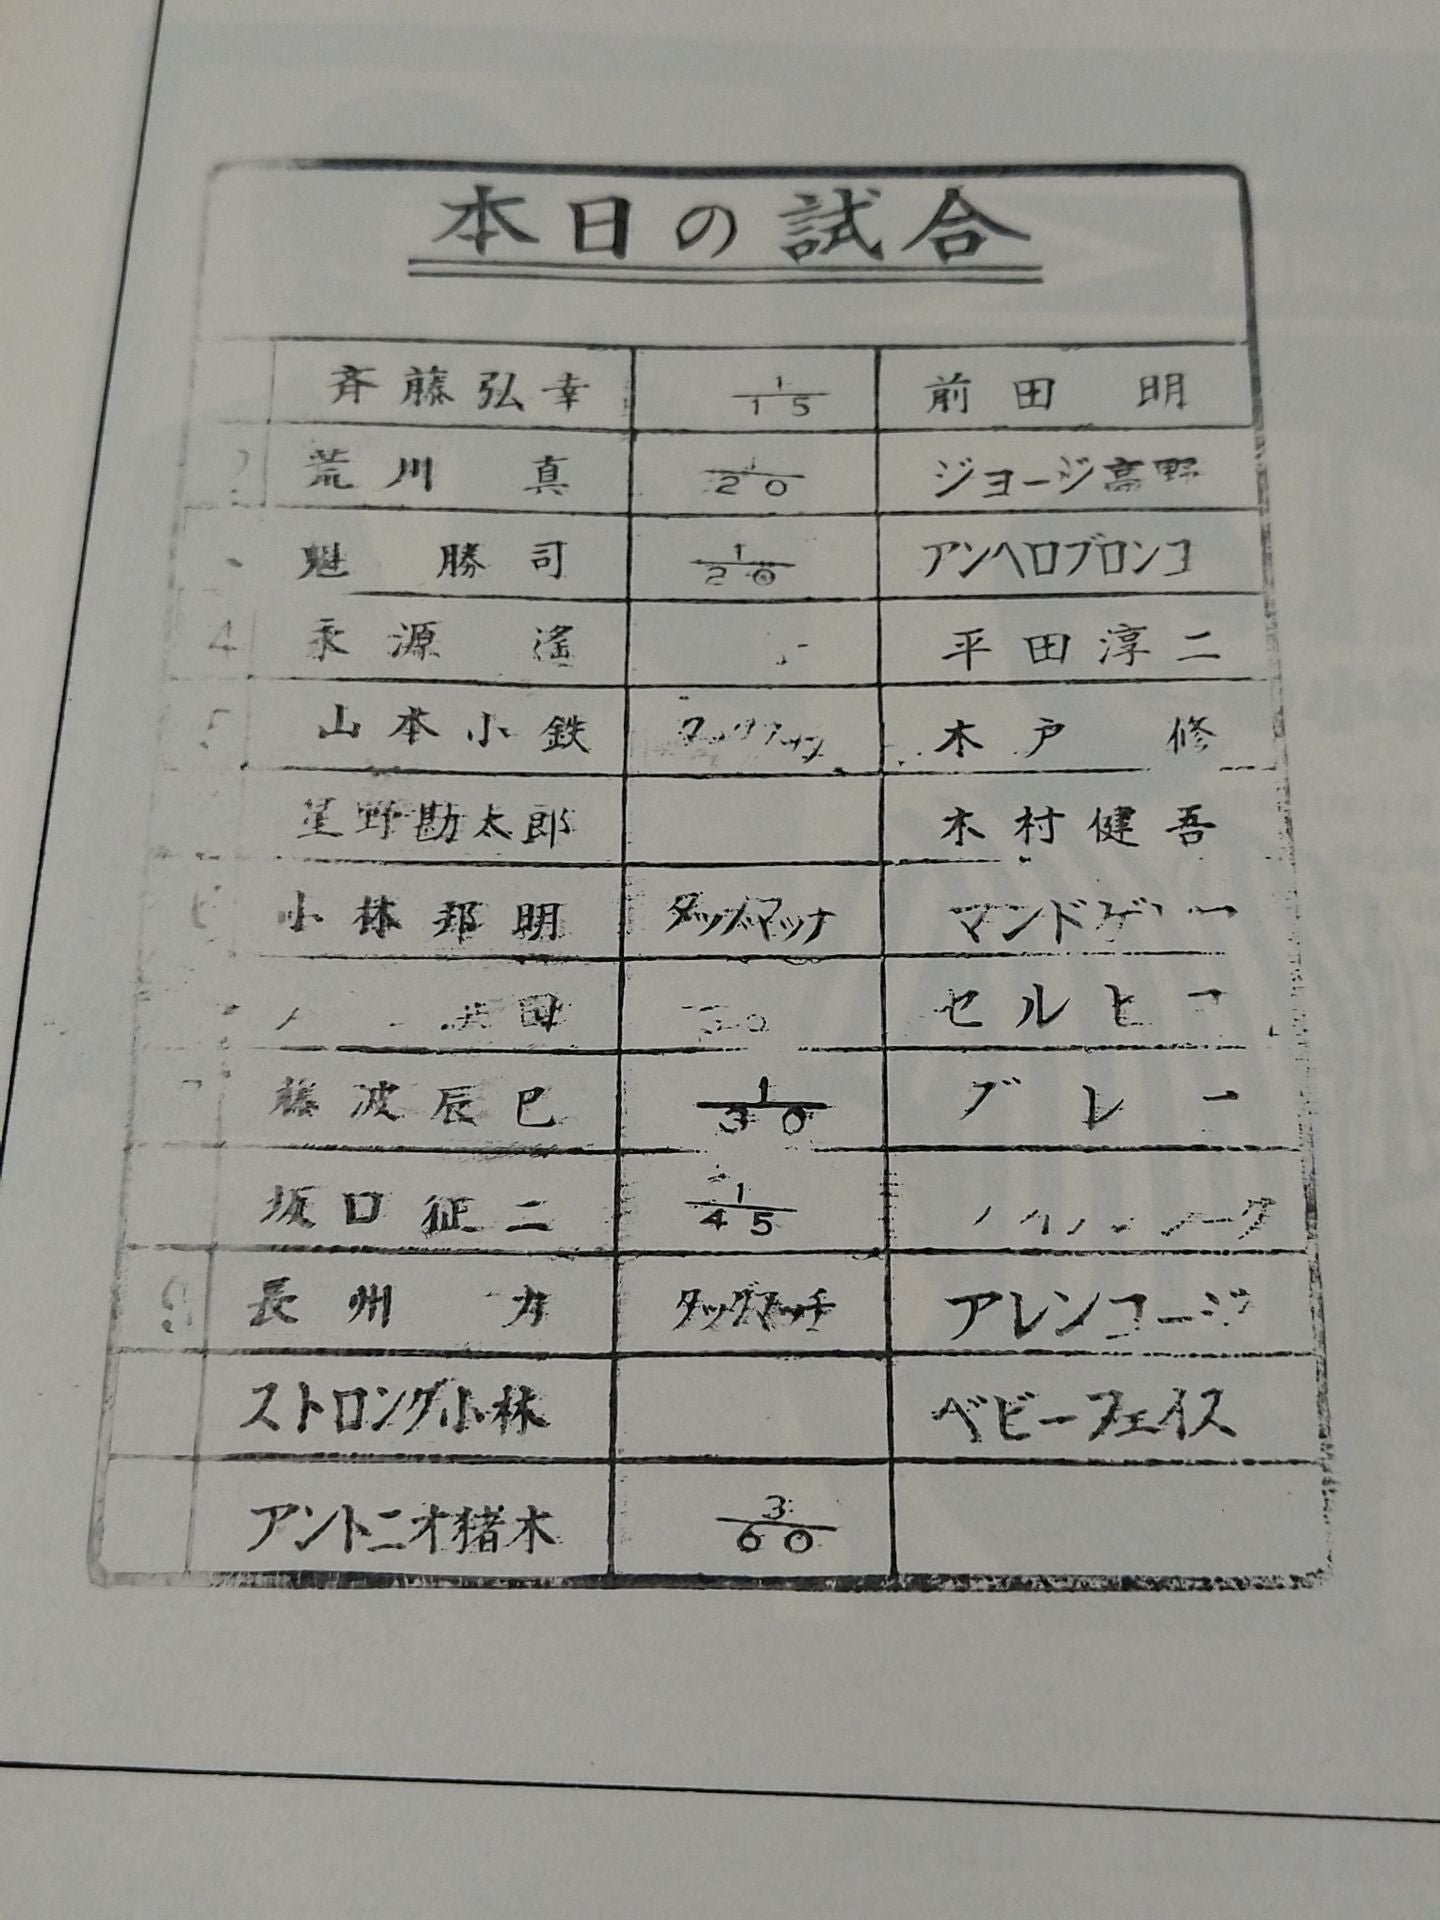 本日の試合
斉藤弘幸 1/15 前田 明
荒川 真 1/20 ジョージ高野
魁 勝司 1/20 アンヘロブロンコ
4 永源 遙 平田淳二
山本小鉄 木戸 修
星野勘太郎 木村健吾
小林邦明 タッグマッチ マンド
セルヒオ
藤波辰巳 1/30
坂口征二 1/45
長州 力 タッグマッチ アレンコージ
ストロング小林 ベビーフェイス
アントニオ猪木 3/60